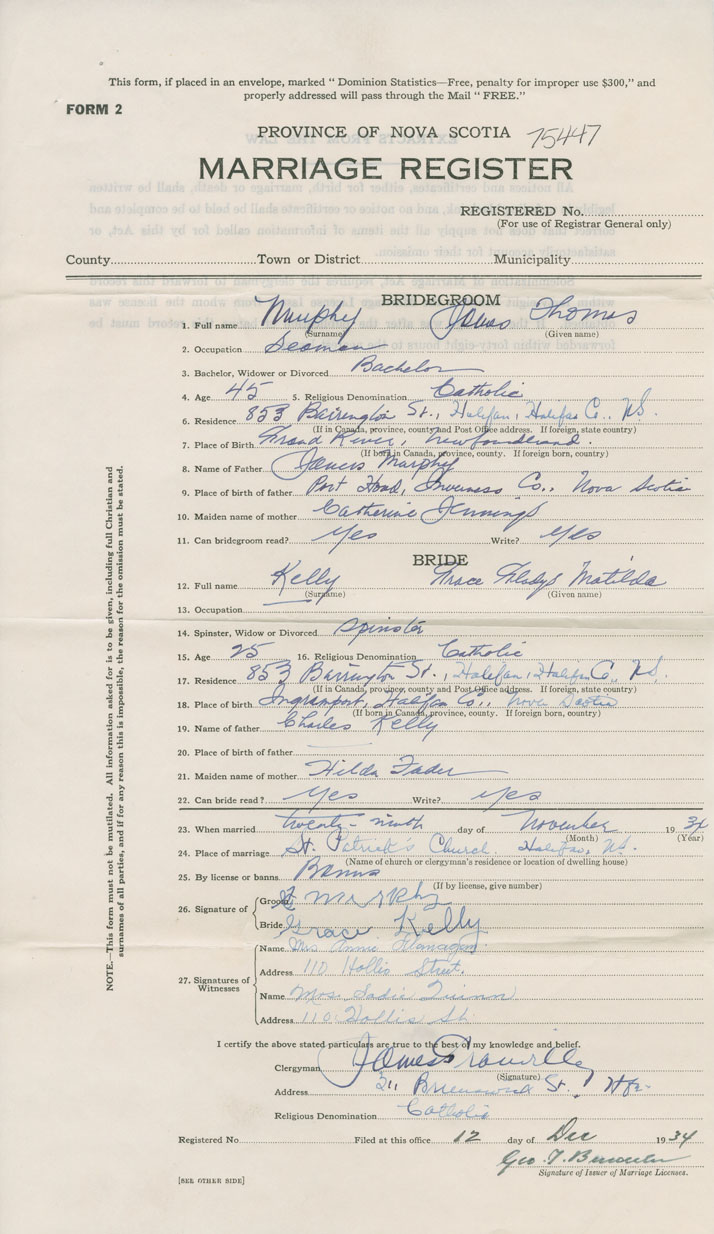 This form, if placed in an envelope, marked “ Dominion Statistics—Free, penalty for improper use $300,” and
properly addressed will pass through the Mail “ FREE.”
FORM 2
PROVINCE OF NOVA SCOTIA 75447
MARRIAGE REGISTER
REGISTERED No.
(For use of Registrar General only)
County Town or District Municipality
BRIDEGROOM
1. Full name Murphy James Thomas
(Surname) (Given name)
2. Occupation Seaman
3. Bachelor, Widower or Divorced Bachelor
4. Age 45 5. Religious Denomination Catholic
6. Residence 853 Barrington St., Halifax, Halifax Co., N.S.
(If in Canada, province, county and Post Office address. If foreign, state country)
7. Place of Birth Grand River, Newfoundland.
(If born in Canada, province, county. If foreign born, country)
8. Name of Father James Murphy
9. Place of birth of father Port Hood, Inverness Co., Nova Scotia
10. Maiden name of mother Catherine Jennings
11. Can bridegroom read? Yes Write? Yes
BRIDE
12. Full name Kelly Grace Gladys Matilda
(Surname) (Given name)
13. Occupation
14. Spinster, Widow or Divorced Spinster
15. Age 25 16. Religious Denomination Catholic
17. Residence 853 Barrington St., Halifax, Halifax Co., N.S.
(If in Canada, province, county and Post Office address. If foreign, state country)
18. Place of birth Ingramport, Halifax Co., Nova Scotia
(If born in Canada, province, county. If foreign born, country)
19. Name of father Charles Kelly
20. Place of birth of father
21. Maiden name of mother Hilda Fader
22. Can bride read? Yes Write? Yes
23. When married twenty-ninth day of November 1934
(Month) (Year)
24. Place of marriage St. Patrick's Church. Halifax, N.S.
(Name of church or clergyman's residence or location of dwelling house)
25. By license or banns Banns
(If by license, give number)
26. Signature of
Groom Murphy
Bride Grace Kelly
27. Signatures of Witnesses
Name Mrs Annie Flanagan
Address 110 Hollis Street.
Name Mrs. Sadie Quinn
Address 110 Hollis St.
I certify the above stated particulars are true to the best of my knowledge and belief.
Clergyman James
(Signature)
Address Brunswick St. Hfx.
Religious Denomination Catholic
Registered No. Filed at this office 12 day of Dec 1934
Geo. T.
Signature of Issuer of Marriage Licenses.
[SEE OTHER SIDE]
NOTE.—This form must not be mutilated. All information asked for is to be given, including full Christian and
surnames of all parties, and if for any reason this is impossible, the reason for the omission must be stated.